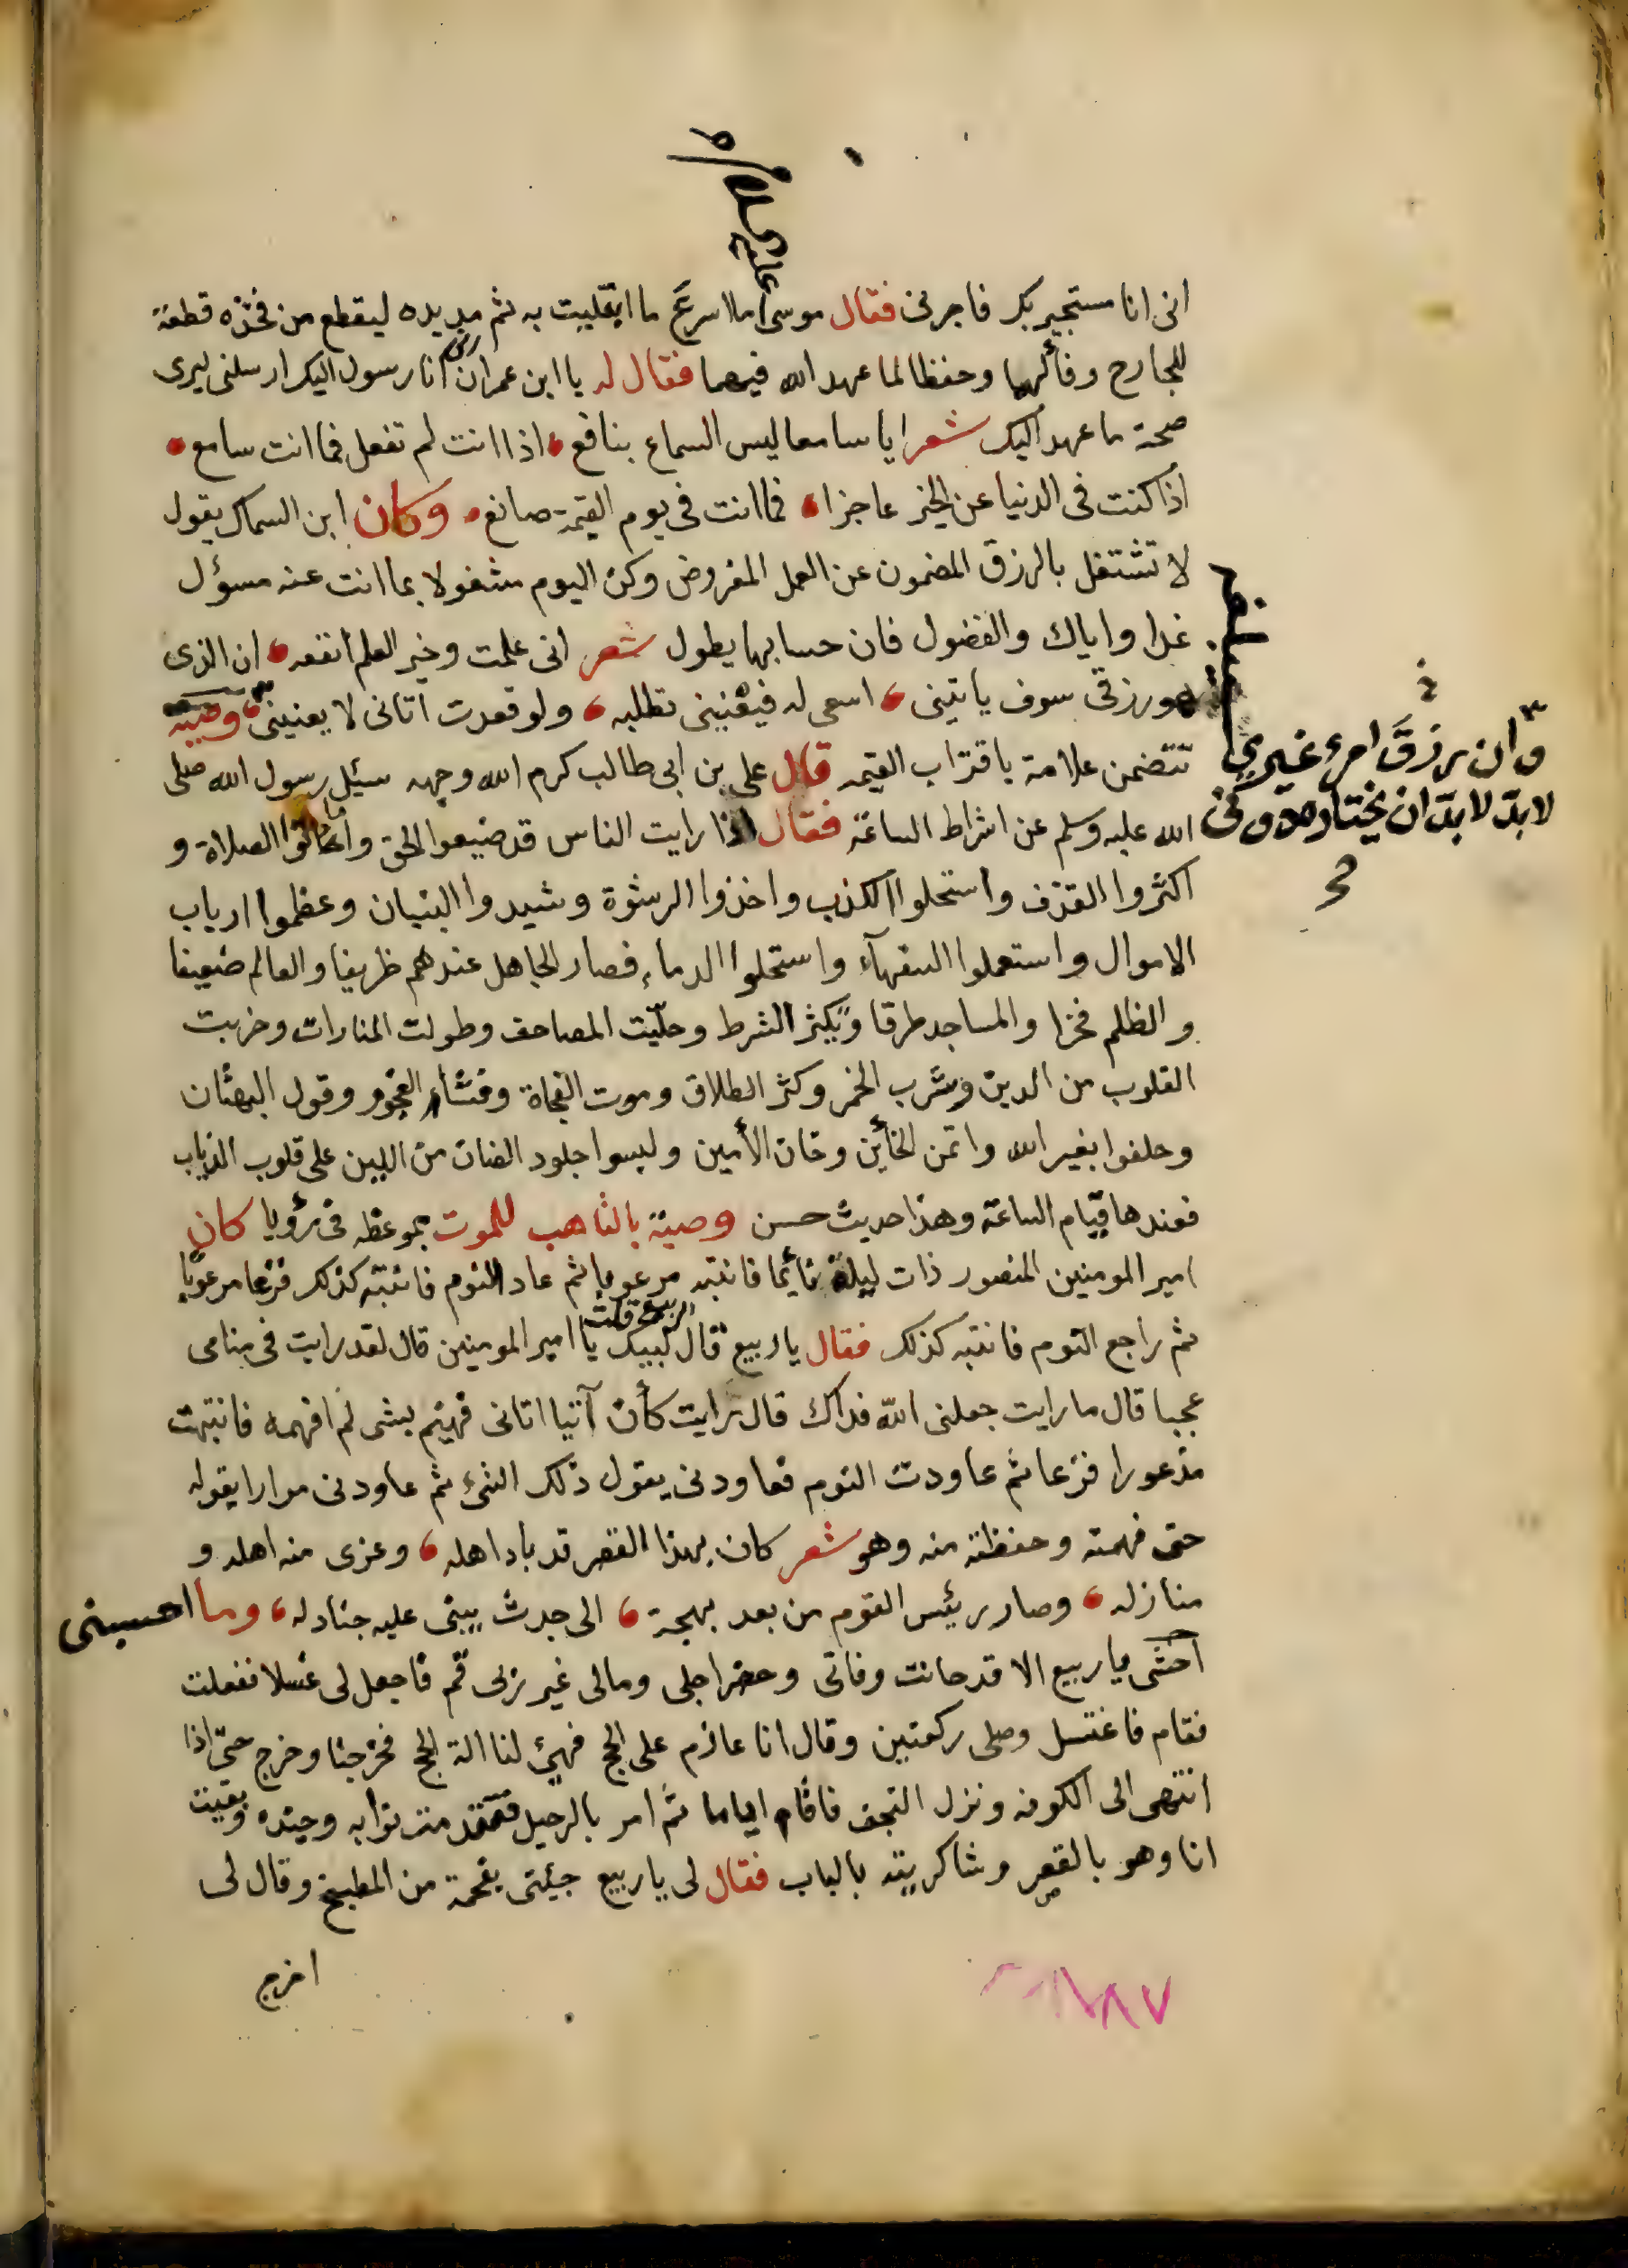 عليه السلام
انى انا مستجير بك فاجرنى فقال موسى ما اسرع ما ابتليت به ثم مد يده ليقطع من فخذه قطعة
للجارح وفألهما وحفظا لما عهد الله فيهما فقال له يا ابن عمران انا رسول ربك اليك ارسلنى ليرى
صحة ما عهد اليك شعر ايا سامعا ليس السماع بنافع اذا انت لم تفعل فما انت سامع
اذا كنت فى الدنيا عن الخير عاجزا فما انت فى يوم القيمة صانع وكان ابن السماك يقول
لا تشتغل بالرزق المضمون عن العمل المفروض وكن اليوم مشغولا بما انت عنه مسؤل
غدا واياك والفضول فان حسابها يطول شعر انى علمت وخير العلم انفعه ان الذى
هو رزقى سوف ياتينى اسعى له فيعنينى تطلبه ولو قعدت اتانى لا يعنينى وصية
وان رزق امرء غيرى
لابد لابد ان يختاره دونى
صح
تتضمن علامة باقتراب القيمه قال على بن ابى طالب كرم الله وجهه سيئل رسول الله صلى
الله عليه وسلم عن اشراط الساعة فقال اذا رايت الناس قد ضيعوا الحق واماتوا الصلاة و
اكثروا القذف واستحلوا الكذب واخذوا الرشوة وشيدوا البنيان وعظموا ارباب
الاموال واستعملوا السفهآء واستحلوا الدماء فصار الجاهل عندهم ظريفا والعالم ضعيفا
والظلم فخرا والمساجد طرقا ويكثر الشرط وحليت المصاحف وطولت المنارات وخربت
القلوب من الدين وشرب الخمر وكثر الطلاق وموت الفجاة وفشاء الفجور وقول البهتان
وحلفوا بغير الله واتمن الخأين وخان الأمين ولبسوا جلود الضان من اللين على قلوب الذياب
فعندها قيام الساعة وهذا حديث حسن وصية بالتاهب للموت بموعظه فى رؤيا كان
امير المومنين المنصور ذات ليلة نأيما فانتبه مرعوبا ثم عاد النوم فانتبه كذلك فزعا مرعوبا
ثم راجع النوم فانتبه كذلك فقال يا ربيع قال الربيع قلت لبيك يا امير المومنين قال لقد رايت فى منامى
عجبا قال ما رايت جعلنى الله فداك قال رايت كأن آتيا اتانى فهيثم بشى لم افهمه فانتبهت
مذعورا فزعا ثم عاودت النوم فعاودنى يقول ذلك الشئ ثم عاودنى مرارا يقوله
حتى فهمته وحفظته منه وهو شعر كان بهذا القصر قد باد اهله وعرى منه اهله و
منازله وصار رئيس القوم من بعد بهجة الى جدث يبنى عليه جنادله وما احسبنى
اخشى يا ربيع الا قد حانت وفاتى وحضر اجلى ومالى غير ربى قم فاجعل لى غسلا ففعلت
فقام فاغتسل وصلى ركعتين وقال انا عازم على الحج فهيئ لنا الة الحج فخرجنا وخرج حتى اذا
انتهى الى الكوفه ونزل النجف فاقام اياما ثم امر بالرحيل فتقدمت نوابه وجنده وبقيت
انا وهو بالقصر وشاكريته بالباب فقال لى يا ربيع جيئنى بفحمة من المطبخ وقال لى
اخرج